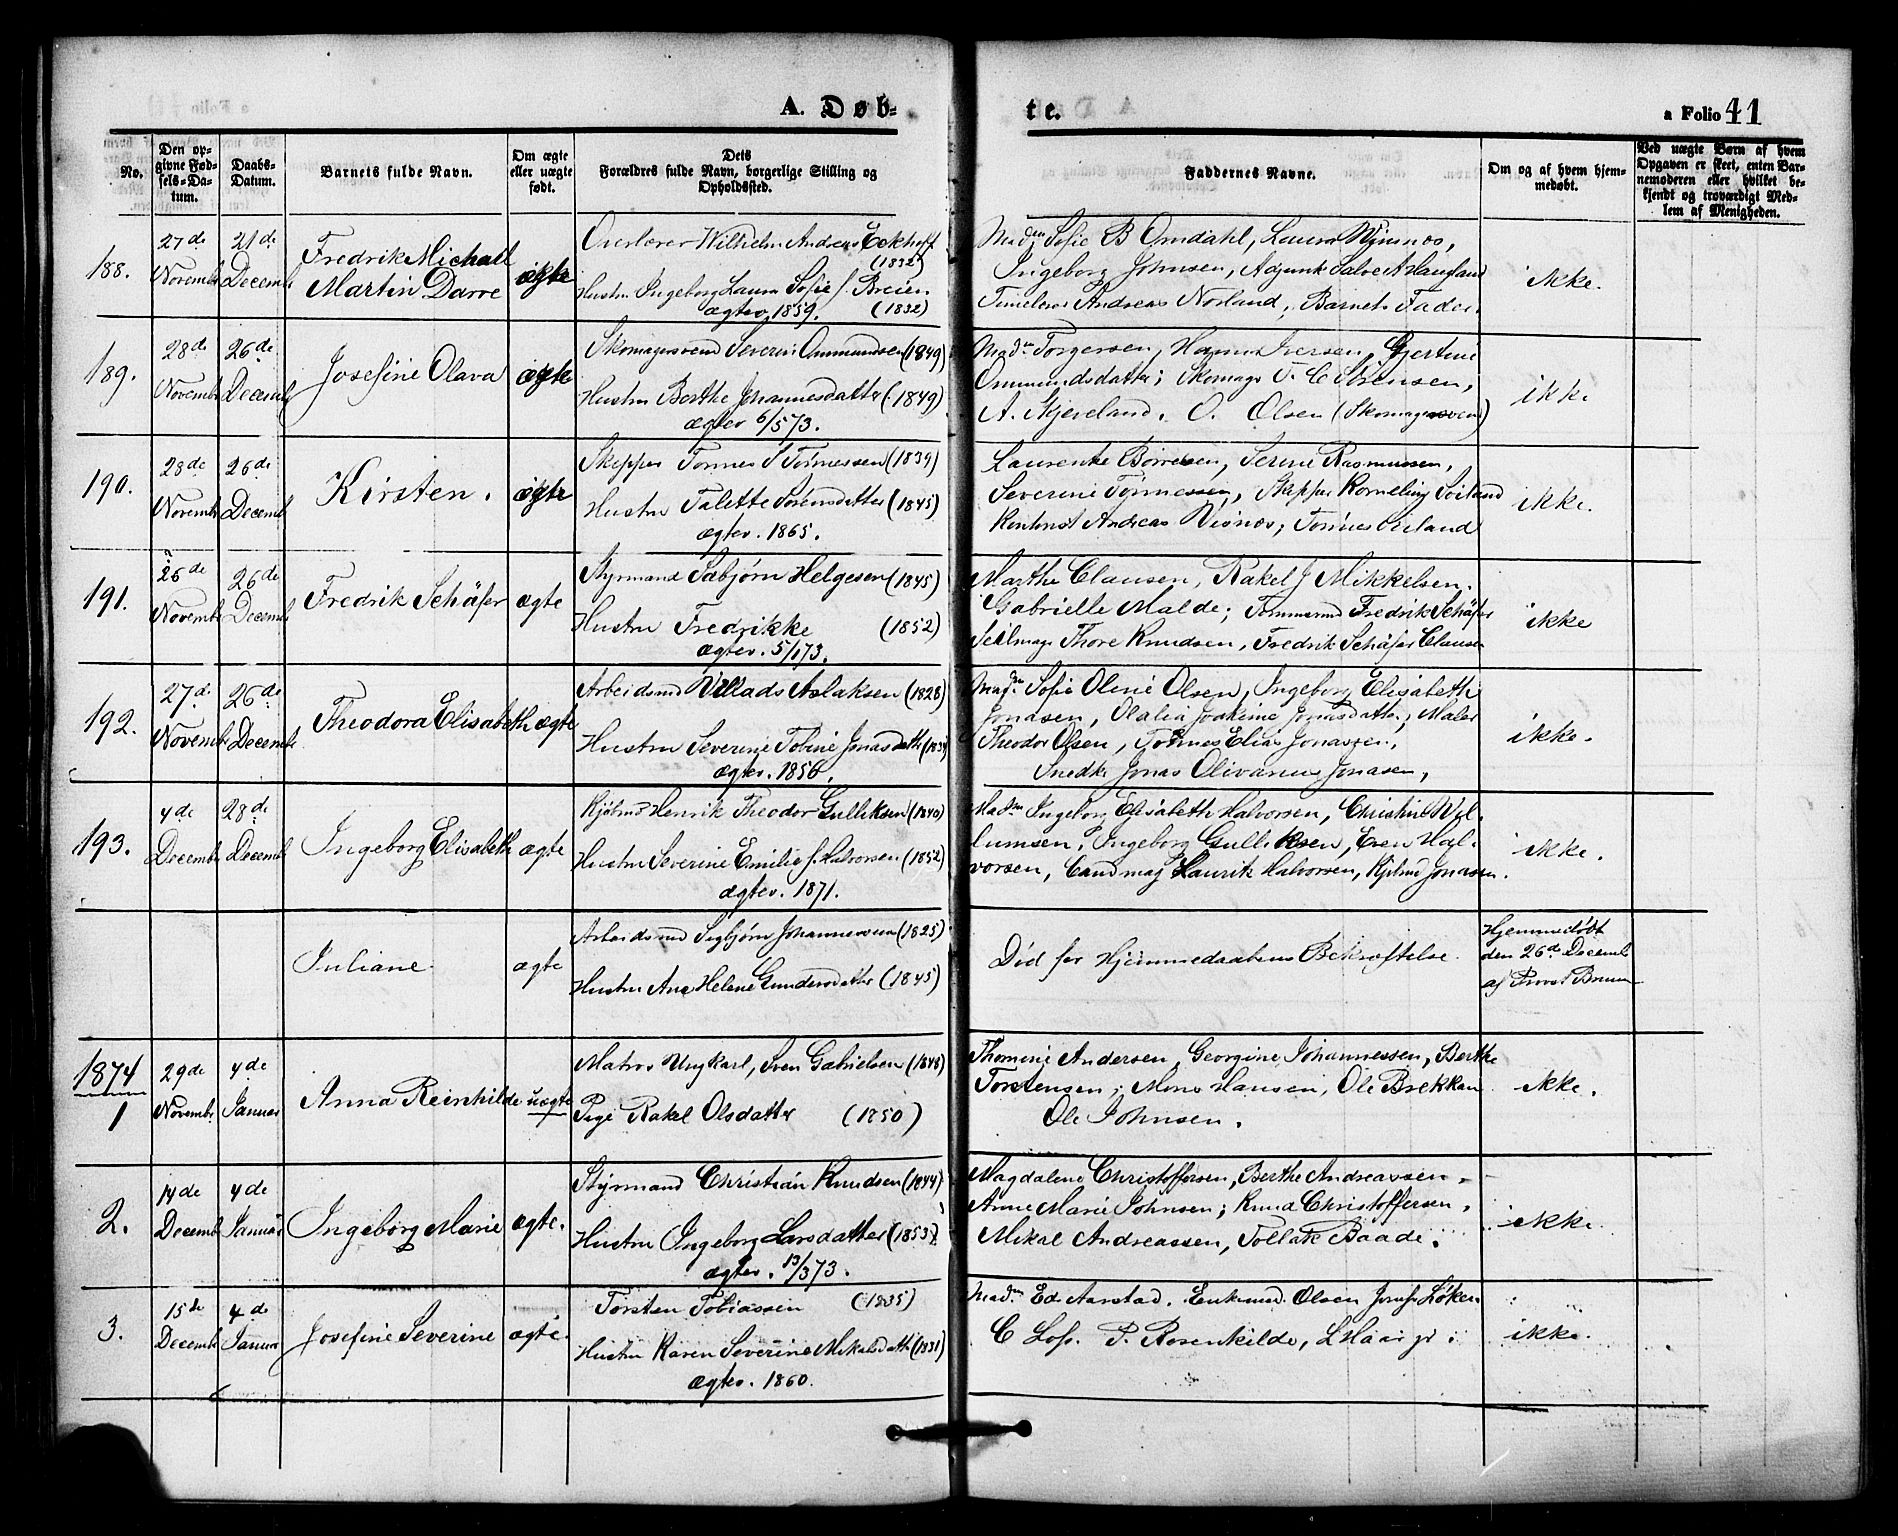 A. Døb-
te.
a Folio 41
No.
Den op-
givne Fød-
sels-Da-
tum.
Daabs-
Datum.
Barnets fulde Navn.
Om ægte
eller uægte
født.
Dets
Forældres fulde Navn, borgerlige Stilling og
Opholdssted.
Faddernes Navne.
Om og af hvem hjem-
medøbt.
Ved uægte Børn af hvem
Opgaven er skeet, enten Bar-
nemoderen eller hvilket be-
kjendt og troværdigt Med-
lem af Menigheden.
188.
27de
Novembr
21de
Decembr
Fredrik Michael
Martin Darre
ægte
Overlærer Wilhelm Andreas Eckhoff
(1832)
Hustru Ingeborg Laura Sofie f. Breien
ægtev. 1859. (1832)
Madm Sofie B Omdahl, Laura
Ingeborg Johnsen, Adjunk Salve A Haugland
Timelærer Andreas Norland, Barnets Fader.
ikke.
189.
28de
Novembr
26de
Decembr
Josefine Olava
ægte
Skomagersvend Severin Ommundsen (1849)
Hustru Berthe Johannesdatter (1849)
ægtev 6/5 73.
Madm Torgersen, Iversen, Gjertine
Ommundsdatter; Skomager T. C Sørensen,
A. Skjeveland, O. Olsen (Skomagersvend)
ikke
190.
28de
Novembr
26de
Decembr
Kirsten.
ægte
Skipper Tønnes S Tønnessen (1839)
Hustru Talette Sørensdatter (1845)
ægtev. 1865.
Laurentze Børresen, Serine Rasmussen,
Severine Tønnessen, Skipper Soiland
Kontorist Andreas, Tønnes
ikke.
191.
26de
Novembr
26de
Decembr
Fredrik Schäfer
ægte
Styrmand Sæbjørn Helgesen (1845)
Hustru Fredrikke (1852)
ægtev. 5/1 73.
Marthe Clausen, Rakel J Mikkelsen,
Gabrielle Malde; Tømmermd Fredrik Schäfer
Seilmag Thore Knudsen, Fredrik Schäfer Clausen
ikke
192.
27de
Novembr
26de
Decembr
Theodora Elisabeth
ægte
Arbeidsmd Villads Aslaksen (1828)
Hustru Severine Tobine Jonasdatter
ægtev. 1856.
Madm Sofie Oline Olsen, Ingeborg Elisabeth
Jonasen, Olalia Joakime Jonasdatter; Maler
Theodor Olsen, Tønnes Elias Jonassen,
Snedker Jonas Olivarius Jonasen,
ikke.
193.
4de
Decembr
28de
Decembr
Ingeborg Elisabeth
ægte
Kjøbmd Henrik Theodor Gulliksen (1840)
Hustru Severine Emilie f. Halvorsen (1852)
ægtev. 1871.
Madm Ingeborg Elisabeth Halvorsen, Christine Wil-
lumsen, Ingeborg Gulliksen, Even Hal-
vorsen, Cand mag Lauritz Halvorsen, Kjøbmd Jonassen.
ikke.
Juliane
ægte
Arbeidsmd Sigbjørn Johannessen (1825)
Hustru Ane Helene Gundersdatter (1845)
Død før Hjemmedaabens Bekræftelse.
Hjemmedøbt
den 26de Decemb
af Provst Bruun
1874
1
29de
Novembr
4de
Januar
Anna Reinhilde
uægte
Matros Ungkarl, Sven Gabrielsen (1848)
Pige Rakel Olsdatter (1850)
Thomine Andersen, Georgine Johannessen, Berthe
Torstensen; Mons Hansen, Ole Brekkan
Ole Johnsen.
ikke.
2.
14de
Decembr
4de
Januar
Ingeborg Marie
ægte.
Styrmand Christian Knudsen (1844)
Hustru Ingeborg Larsdatter (1853)
ægtev. 13/3 73.
Magdalene Christoffersen, Berthe Andreassen,
Anne Marie Johnsen; Knud Christoffersen,
Mikal Andreassen, Tollak Baade.
ikke.
3.
15de
Decembr
4de
Januar
Josefine Severine
ægte.
Torsten Tobiassen (1835)
Hustru Karen Severine Mikalsdatter (1831)
ægtev. 1860.
Madm Ed. Aarstad. Enkemd Olsen Løken
C Lofs. P. Rosenkilde, L Haar jr.
ikke.